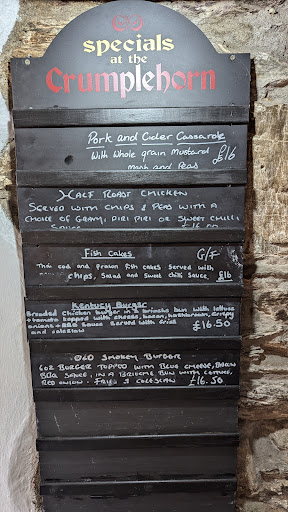 specials
at the
Crumplehorn
Pork and Cider Cassarole
With Whole grain Mustard
Mash and Peas £16
Half Roast Chicken
Served with chips & Peas with a
choice of Gravy, Piri Piri or Sweet Chilli
Sauce £16.00
Fish Cakes G/F
Thai cod and Prawn fish cakes served with
chips, Salad and Sweet chilli Sauce £16
Kentucky Burger
Breaded Chicken burger in a brioche bun with lettuce
+ tomato topped with cheese, bacon, hashbrown, crispy
onions + BBQ Sauce served with fries £16.50
and coleslaw
Old Smokey Burger
6oz Burger topped with Blue cheese, Bacon
BBQ Sauce, in a Brioche Bun with lettuce,
red onion. Fries & coleslaw £16.50